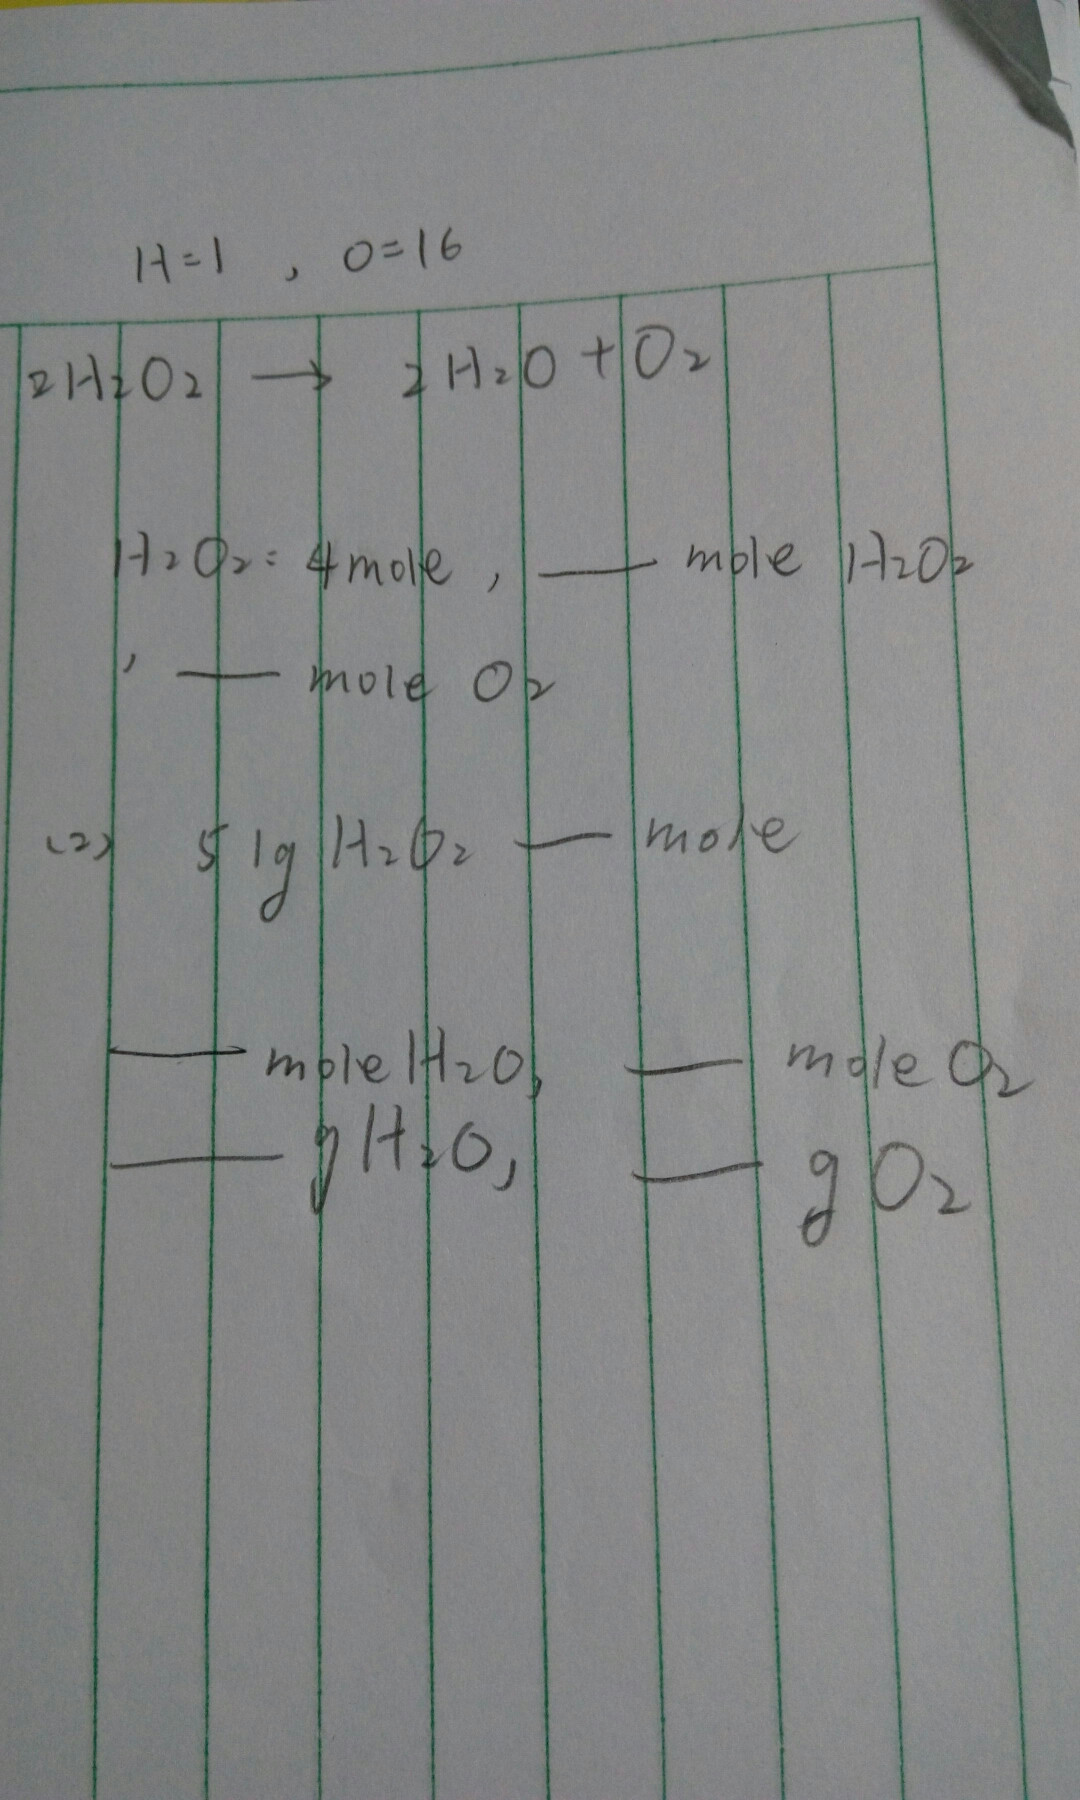 H=1 , O=16
2H₂O₂ → 2H₂O + O₂
H₂O₂ = 4mole , ___ mole H₂O₂
, ___ mole O₂
(2) 51g H₂O₂ ___ mole
___ mole H₂O, ___ mole O₂
___ g H₂O, ___ g O₂